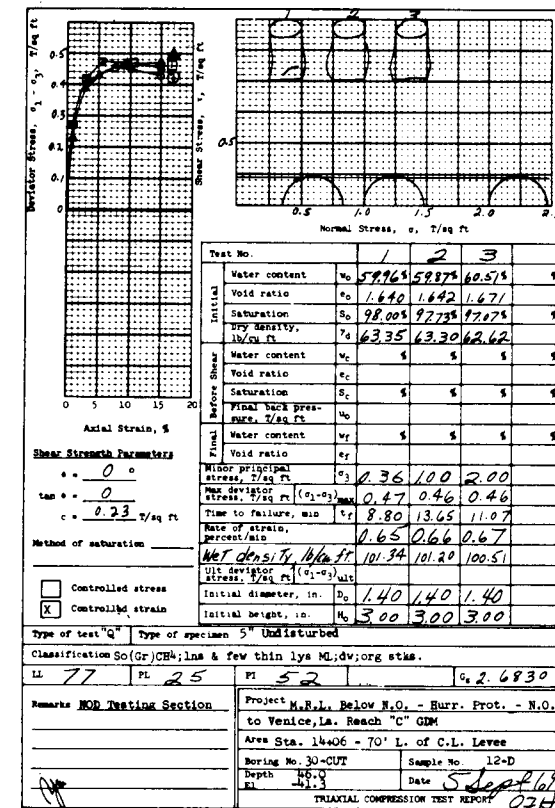 1 2 3
Deviator Stress, σ1 - σ3, T/sq ft
0.5
0.4
0.3
0.2
0.1
0
0 5 10 15 20
Axial Strain, %
Shear Stress, τ, T/sq ft
0.5
0.5 1.0 1.5 2.0 2.
Normal Stress, σ, T/sq ft
Shear Strength Parameters
φ = 0 °
tan φ = 0
c = 0.23 T/sq ft
Method of saturation
Controlled stress
X Controlled strain
Test No. 1 2 3
Initial
Water content w₀ 59.96% 59.87% 60.51% %
Void ratio e₀ 1.640 1.642 1.671
Saturation S₀ 98.00% 97.73% 97.07% %
Dry density, lb/cu ft γd 63.35 63.30 62.62
Before Shear
Water content wc % % % %
Void ratio ec
Saturation Sc % % % %
Final back pressure, T/sq ft u₀
Final
Water content wf % % % %
Void ratio ef
Minor principal stress, T/sq ft σ3 0.36 1.00 2.00
Max deviator stress, T/sq ft (σ1-σ3)max 0.47 0.46 0.46
Time to failure, min tf 8.80 13.65 11.07
Rate of strain, percent/min 0.65 0.66 0.67
Wet density, lb/cu ft. 101.34 101.20 100.51
Ult deviator stress, T/sq ft (σ1-σ3)ult
Initial diameter, in. D₀ 1.40 1.40 1.40
Initial height, in. H₀ 3.00 3.00 3.00
Type of test "Q" Type of specimen 5" Undisturbed
Classification So(Gr)CH4;lns & few thin lys ML;dw;org stks.
LL 77 PL 25 PI 52 Gs 2.6830
Remarks NOD Testing Section
Project M.R.L. Below N.O. - Hurr. Prot. - N.O.
to Venice,La. Reach "C" GDM
Area Sta. 14+06 - 70' L. of C.L. Levee
Boring No. 30-CUT Sample No. 12-D
Depth 46.0
El -41.3
Date 5 Sept
TRIAXIAL COMPRESSION TEST REPORT